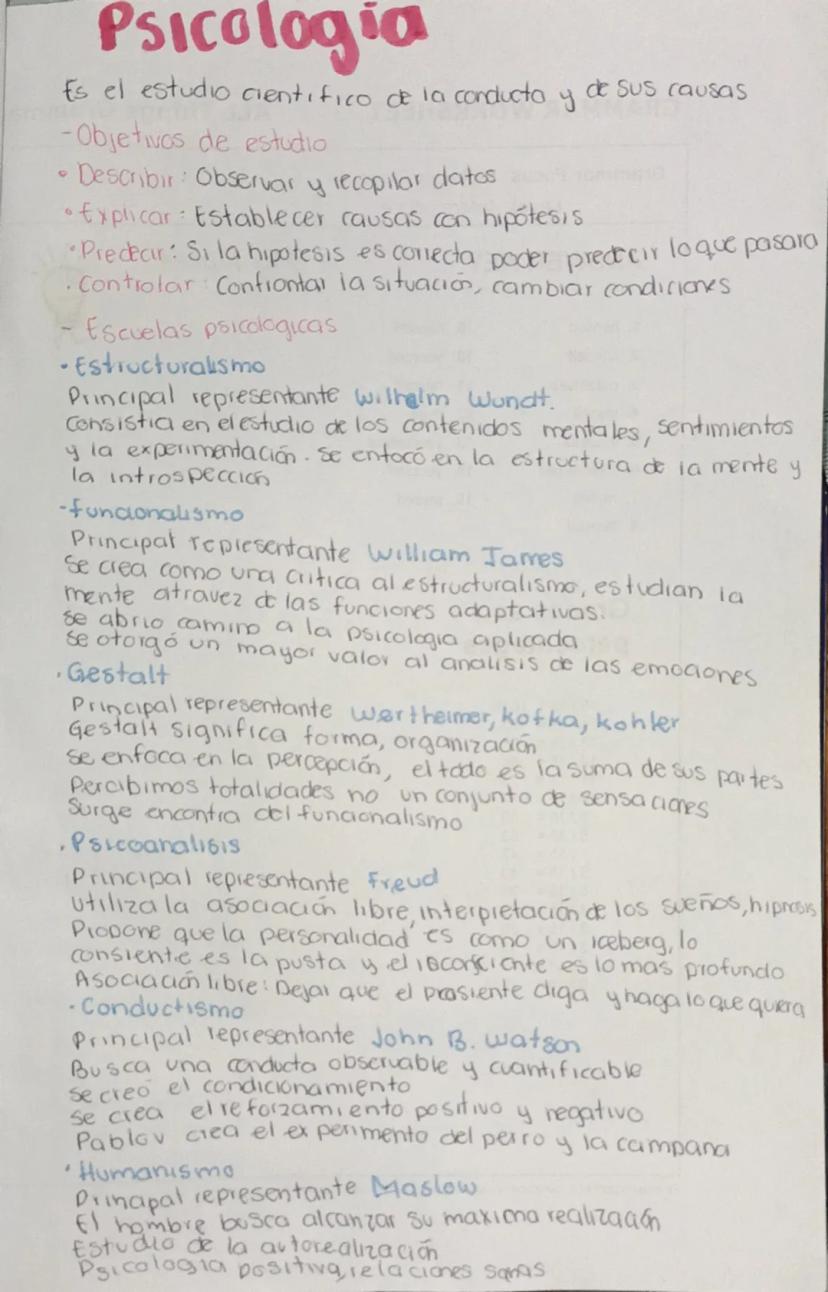 Psicologia
Es el estudio cientifico de la conducta y de sus causas
- Objetivos de estudio
• Describir: Observar y recopilar datos
• Explicar: Establecer causas con hipótesis
• Predecir: Si la hipotesis es correcta poder predecir lo que pasara
• Controlar: Confrontar la situación, cambiar condiciones
- Escuelas psicologicas
• Estructuralismo
Principal representante Wilhelm Wundt.
Consistia en el estudio de los contenidos mentales, sentimientos
y la experimentación. Se enfocó en la estructura de la mente y
la introspección
- funcionalismo
Principal representante William James
Se crea como una critica al estructuralismo, estudian la
mente atravez de las funciones adaptativas.
se abrio camino a la psicologia aplicada
se otorgó un mayor valor al analisis de las emociones
• Gestalt
Principal representante Wertheimer, kofka, kohler
Gestalt significa forma, organización
se enfoca en la percepción, el todo es la suma de sus partes
Percibimos totalidades no un conjunto de sensaciones
Surge encontra del funcionalismo
• Psicoanalisis
Principal representante Freud
Utiliza la asociación libre, interpretación de los sueños, hipnosis
Propone que la personalidad es como un iceberg, lo
consiente es la pusta y el inconsciente es lo mas profundo
Asociación libre: Dejar que el prasiente diga y haga lo que quiera
• Conductismo
Principal representante John B. Watson
Busca una conducta observable y cuantificable
se creó el condicionamiento
se crea el reforzamiento positivo y negativo
Pablov crea el experimento del perro y la campana
• Humanismo
Principal representante Maslow
El hombre busca alcanzar su maxima realización
Estudio de la autorealización
Psicologia positiva, relaciones sanas